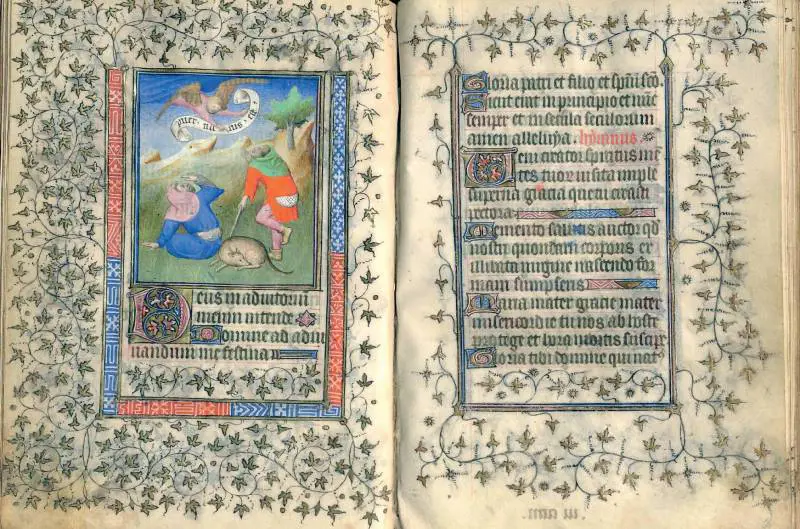 puer · na tus · est ·
Deus in adiutorium
meum intende
Domine ad adiu
uandum me festina
Gloria patri et filio et spui sco
Sicut erat in principio et nuc
semper et in secula seculorum
amen alleluya. hympnus.
Veni creator spiritus me
tes tuor uisita imple
superna gracia que tu creasti
pectora
Memento salutis auctor qd
nostri quondam corporis ex
illibata uirgine nascendo for
mam sumpseris
Maria mater gracie mater
misericordie tu nos ab hoste
protege et hora mortis suscipe
Gloria tibi domine qui nat